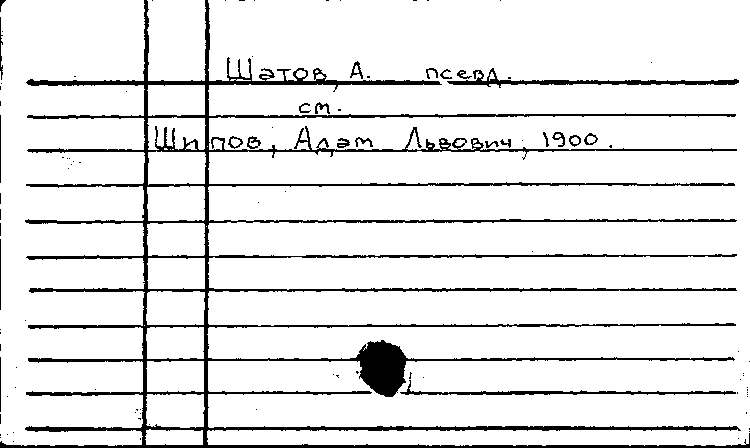 Шатов, А. псевд.
см.
Шипов, Адам Львович, 1900.